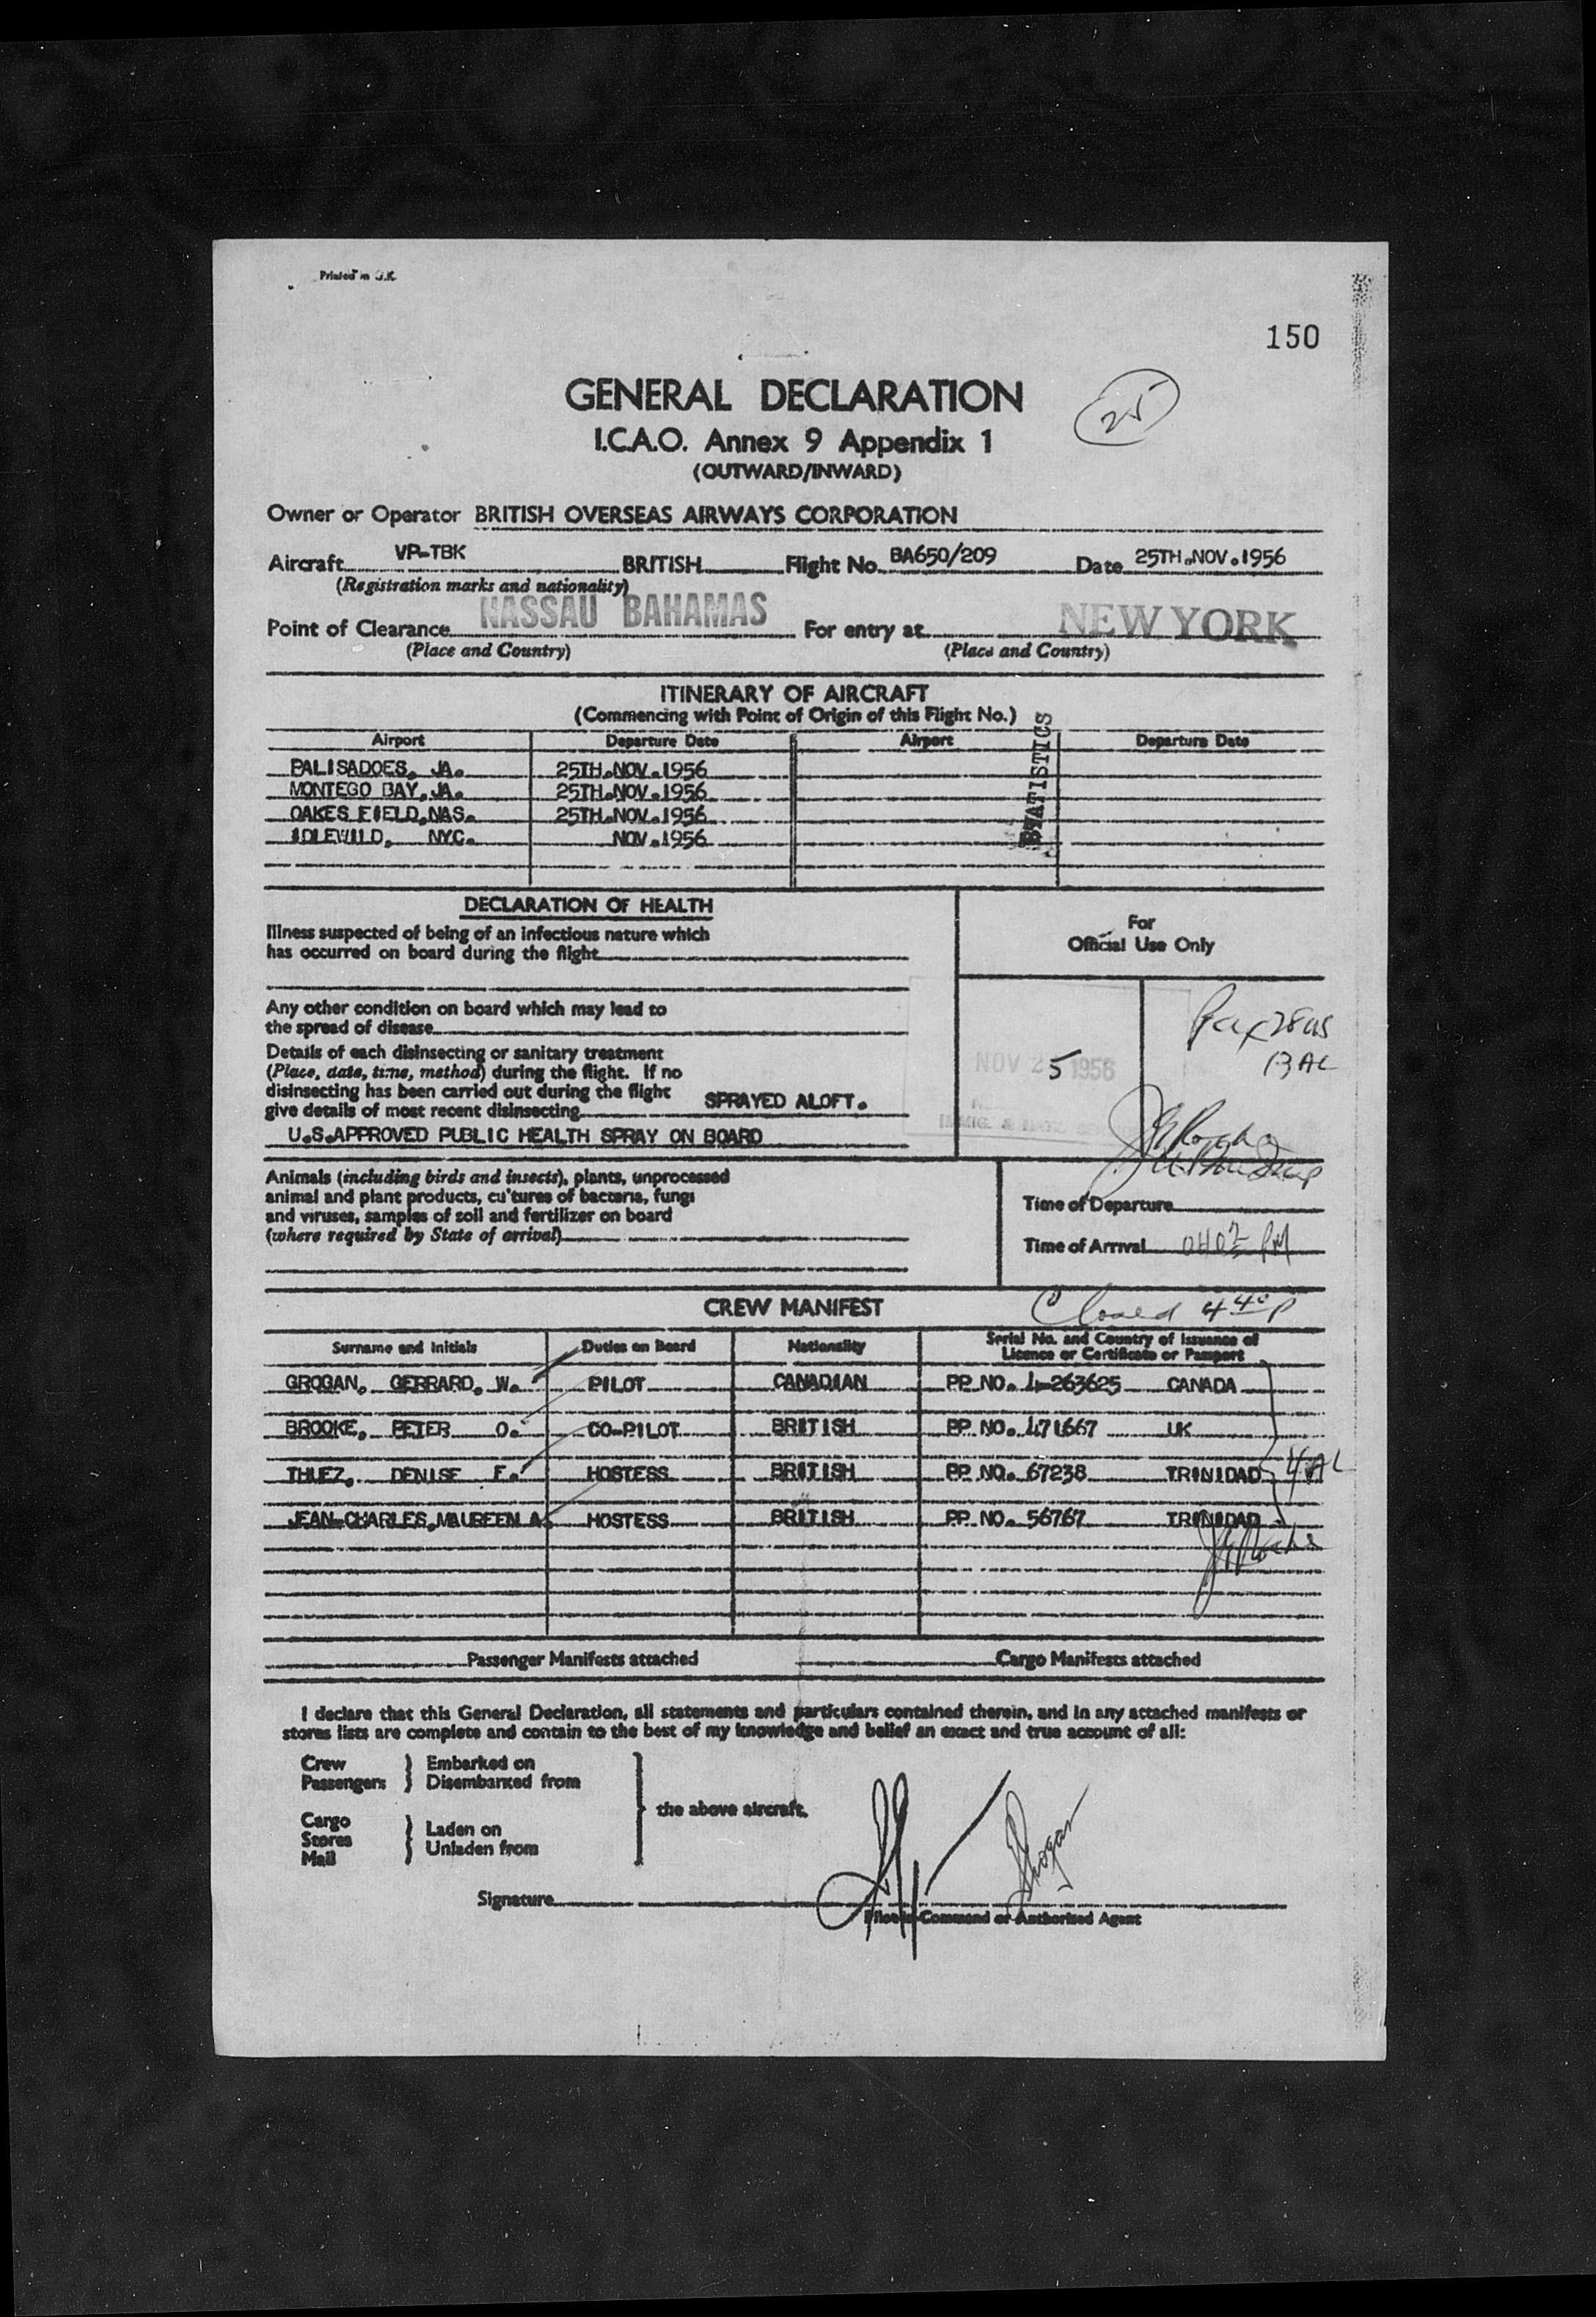 Printed in U.K.
150
GENERAL DECLARATION
25
I.C.A.O. Annex 9 Appendix 1
(OUTWARD/INWARD)
Owner or Operator BRITISH OVERSEAS AIRWAYS CORPORATION
Aircraft VP-TBK BRITISH Flight No. BA650/209 Date 25TH.NOV.1956
(Registration marks and nationality)
Point of Clearance NASSAU BAHAMAS For entry at NEW YORK
(Place and Country) (Place and Country)
ITINERARY OF AIRCRAFT
(Commencing with Point of Origin of this Flight No.)
STATISTICS
Airport Departure Date Airport Departure Date
PALISADOES, JA. 25TH.NOV.1956
MONTEGO BAY, JA. 25TH.NOV.1956
OAKES FIELD, NAS. 25TH.NOV.1956
IDLEWILD, NYC. NOV.1956
DECLARATION OF HEALTH
For
Official Use Only
Illness suspected of being of an infectious nature which
has occurred on board during the flight
Any other condition on board which may lead to
the spread of disease
Details of each disinsecting or sanitary treatment
(Place, date, time, method) during the flight. If no
disinsecting has been carried out during the flight
give details of most recent disinsecting SPRAYED ALOFT.
U.S.APPROVED PUBLIC HEALTH SPRAY ON BOARD
NOV 25 1956
Pax 28 US
13 AL
Animals (including birds and insects), plants, unprocessed
animal and plant products, cultures of bacteria, fungi
and viruses, samples of soil and fertilizer on board
(where required by State of arrival)
Time of Departure
Time of Arrival 0402 PM
CREW MANIFEST
Closed 4 40 P
Surname and Initials Duties on Board Nationality Serial No. and Country of Issuance of
Licence or Certificate or Passport
GROGAN, GERRARD, W. PILOT CANADIAN PP NO. 4-263625 CANADA
BROOKE, PETER O. CO-PILOT BRITISH PP NO. 471667 UK
THUEZ, DENISE F. HOSTESS BRITISH PP NO. 67238 TRINIDAD
4 AL
JEAN-CHARLES, MAUREEN A. HOSTESS BRITISH PP NO. 56767 TRINIDAD
Passenger Manifests attached Cargo Manifests attached
I declare that this General Declaration, all statements and particulars contained therein, and in any attached manifests or
stores lists are complete and contain to the best of my knowledge and belief an exact and true account of all:
Crew Embarked on
Passengers Disembarked from
the above aircraft.
Cargo
Stores Laden on
Mail Unladen from
Grogan
Signature
Pilot in Command or Authorised Agent